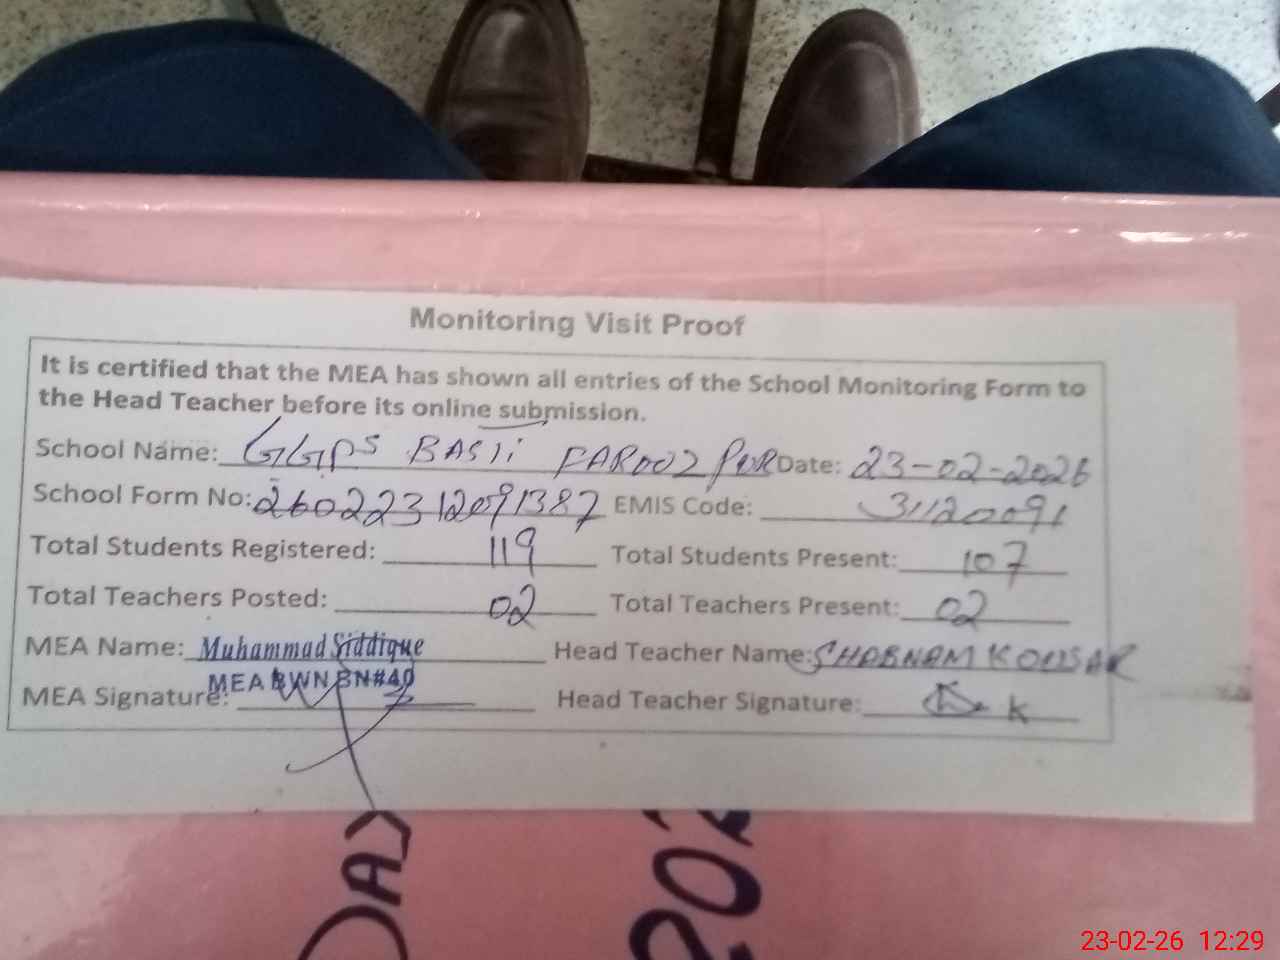 Monitoring Visit Proof
It is certified that the MEA has shown all entries of the School Monitoring Form to
the Head Teacher before its online submission.
School Name: GGPS BASTI FAROOZ PUR Date: 23-02-2026
School Form No: 26022312091387 EMIS Code: 31120091
Total Students Registered: 119 Total Students Present: 107
Total Teachers Posted: 02 Total Teachers Present: 02
MEA Name: Muhammad Siddique Head Teacher Name: SHABNAM KOUSAR
MEA BWN BN#40
MEA Signature: Head Teacher Signature:
DAY
23-02-26 12:29